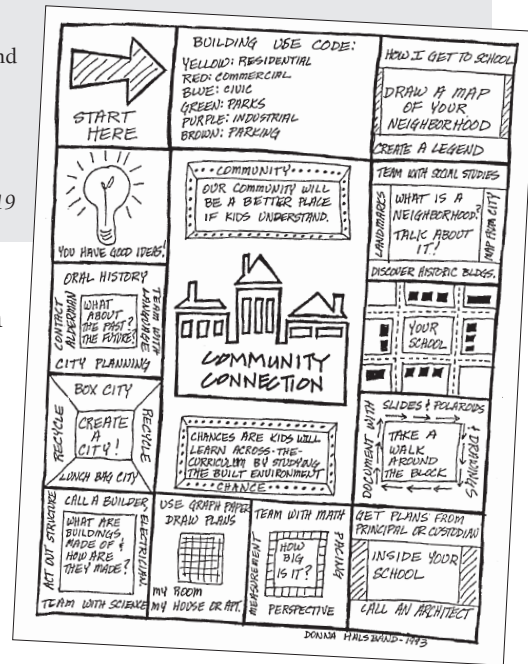 nd
19
n
START
HERE
BUILDING USE CODE:
YELLOW: RESIDENTIAL
RED: COMMERCIAL
BLUE: CIVIC
GREEN: PARKS
PURPLE: INDUSTRIAL
BROWN: PARKING
HOW I GET TO SCHOOL
DRAW A MAP
OF YOUR
NEIGHBORHOOD
CREATE A LEGEND
YOU HAVE GOOD IDEAS!
COMMUNITY
OUR COMMUNITY WILL
BE A BETTER PLACE
IF KIDS UNDERSTAND.
TEAM WITH SOCIAL STUDIES
LANDMARKS
WHAT IS A
NEIGHBORHOOD?
TALK ABOUT
IT!
MAP FROM CITY
DISCOVER HISTORIC BLDGS.
ORAL HISTORY
CONTACT
ALDERMAN
WHAT
ABOUT
THE PAST?
THE FUTURE?
TEAM WITH
LANGUAGE
CITY PLANNING
COMMUNITY
CONNECTION
YOUR
SCHOOL
BOX CITY
RECYCLE
CREATE
A
CITY!
RECYCLE
LUNCH BAG CITY
CHANCES ARE KIDS WILL
LEARN ACROSS-THE-
CURRICULUM BY STUDYING
THE BUILT ENVIRONMENT
CHANCE
SLIDES & POLAROIDS
DOCUMENT WITH
TAKE A
WALK
AROUND
THE BLOCK
& DRAWINGS
CALL A BUILDER,
ELECTRICIAN
ACT OUT STRUCTURE
WHAT ARE
BUILDINGS
MADE OF &
HOW ARE
THEY MADE?
TEAM WITH SCIENCE
USE GRAPH PAPER
DRAW PLANS
MY ROOM
MY HOUSE OR APT.
TEAM WITH MATH
MEASUREMENT
HOW
BIG
IS IT?
PACING
PERSPECTIVE
GET PLANS FROM
PRINCIPAL OR CUSTODIAN
INSIDE YOUR
SCHOOL
CALL AN ARCHITECT
DONNA HALSBAND-1993